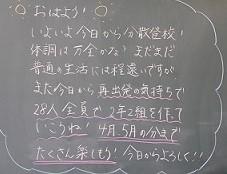 おはよう!
いよいよ今日から分散登校!
体調は万全かな?まだまだ
普通の生活には程遠いですが
また今日から再出発の気持ちで
28人全員で2年2組を作って
いこうね!4月、5月の分まで
たくさん楽しもう!今日からよろしく!!